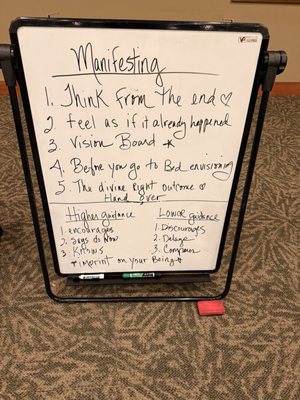 Manifesting
1. Think From The end ♡
2. Feel as if it already happened
3. Vision Board *
4. Before you go to Bed envisioning
5. The divine Right Outcome ♡
Hand over
Higher guidance
1. encourages
2. Says do Now
3. Knows
* imprint on your Being *
Lower guidance
1. Discourages
2. Delays
3.